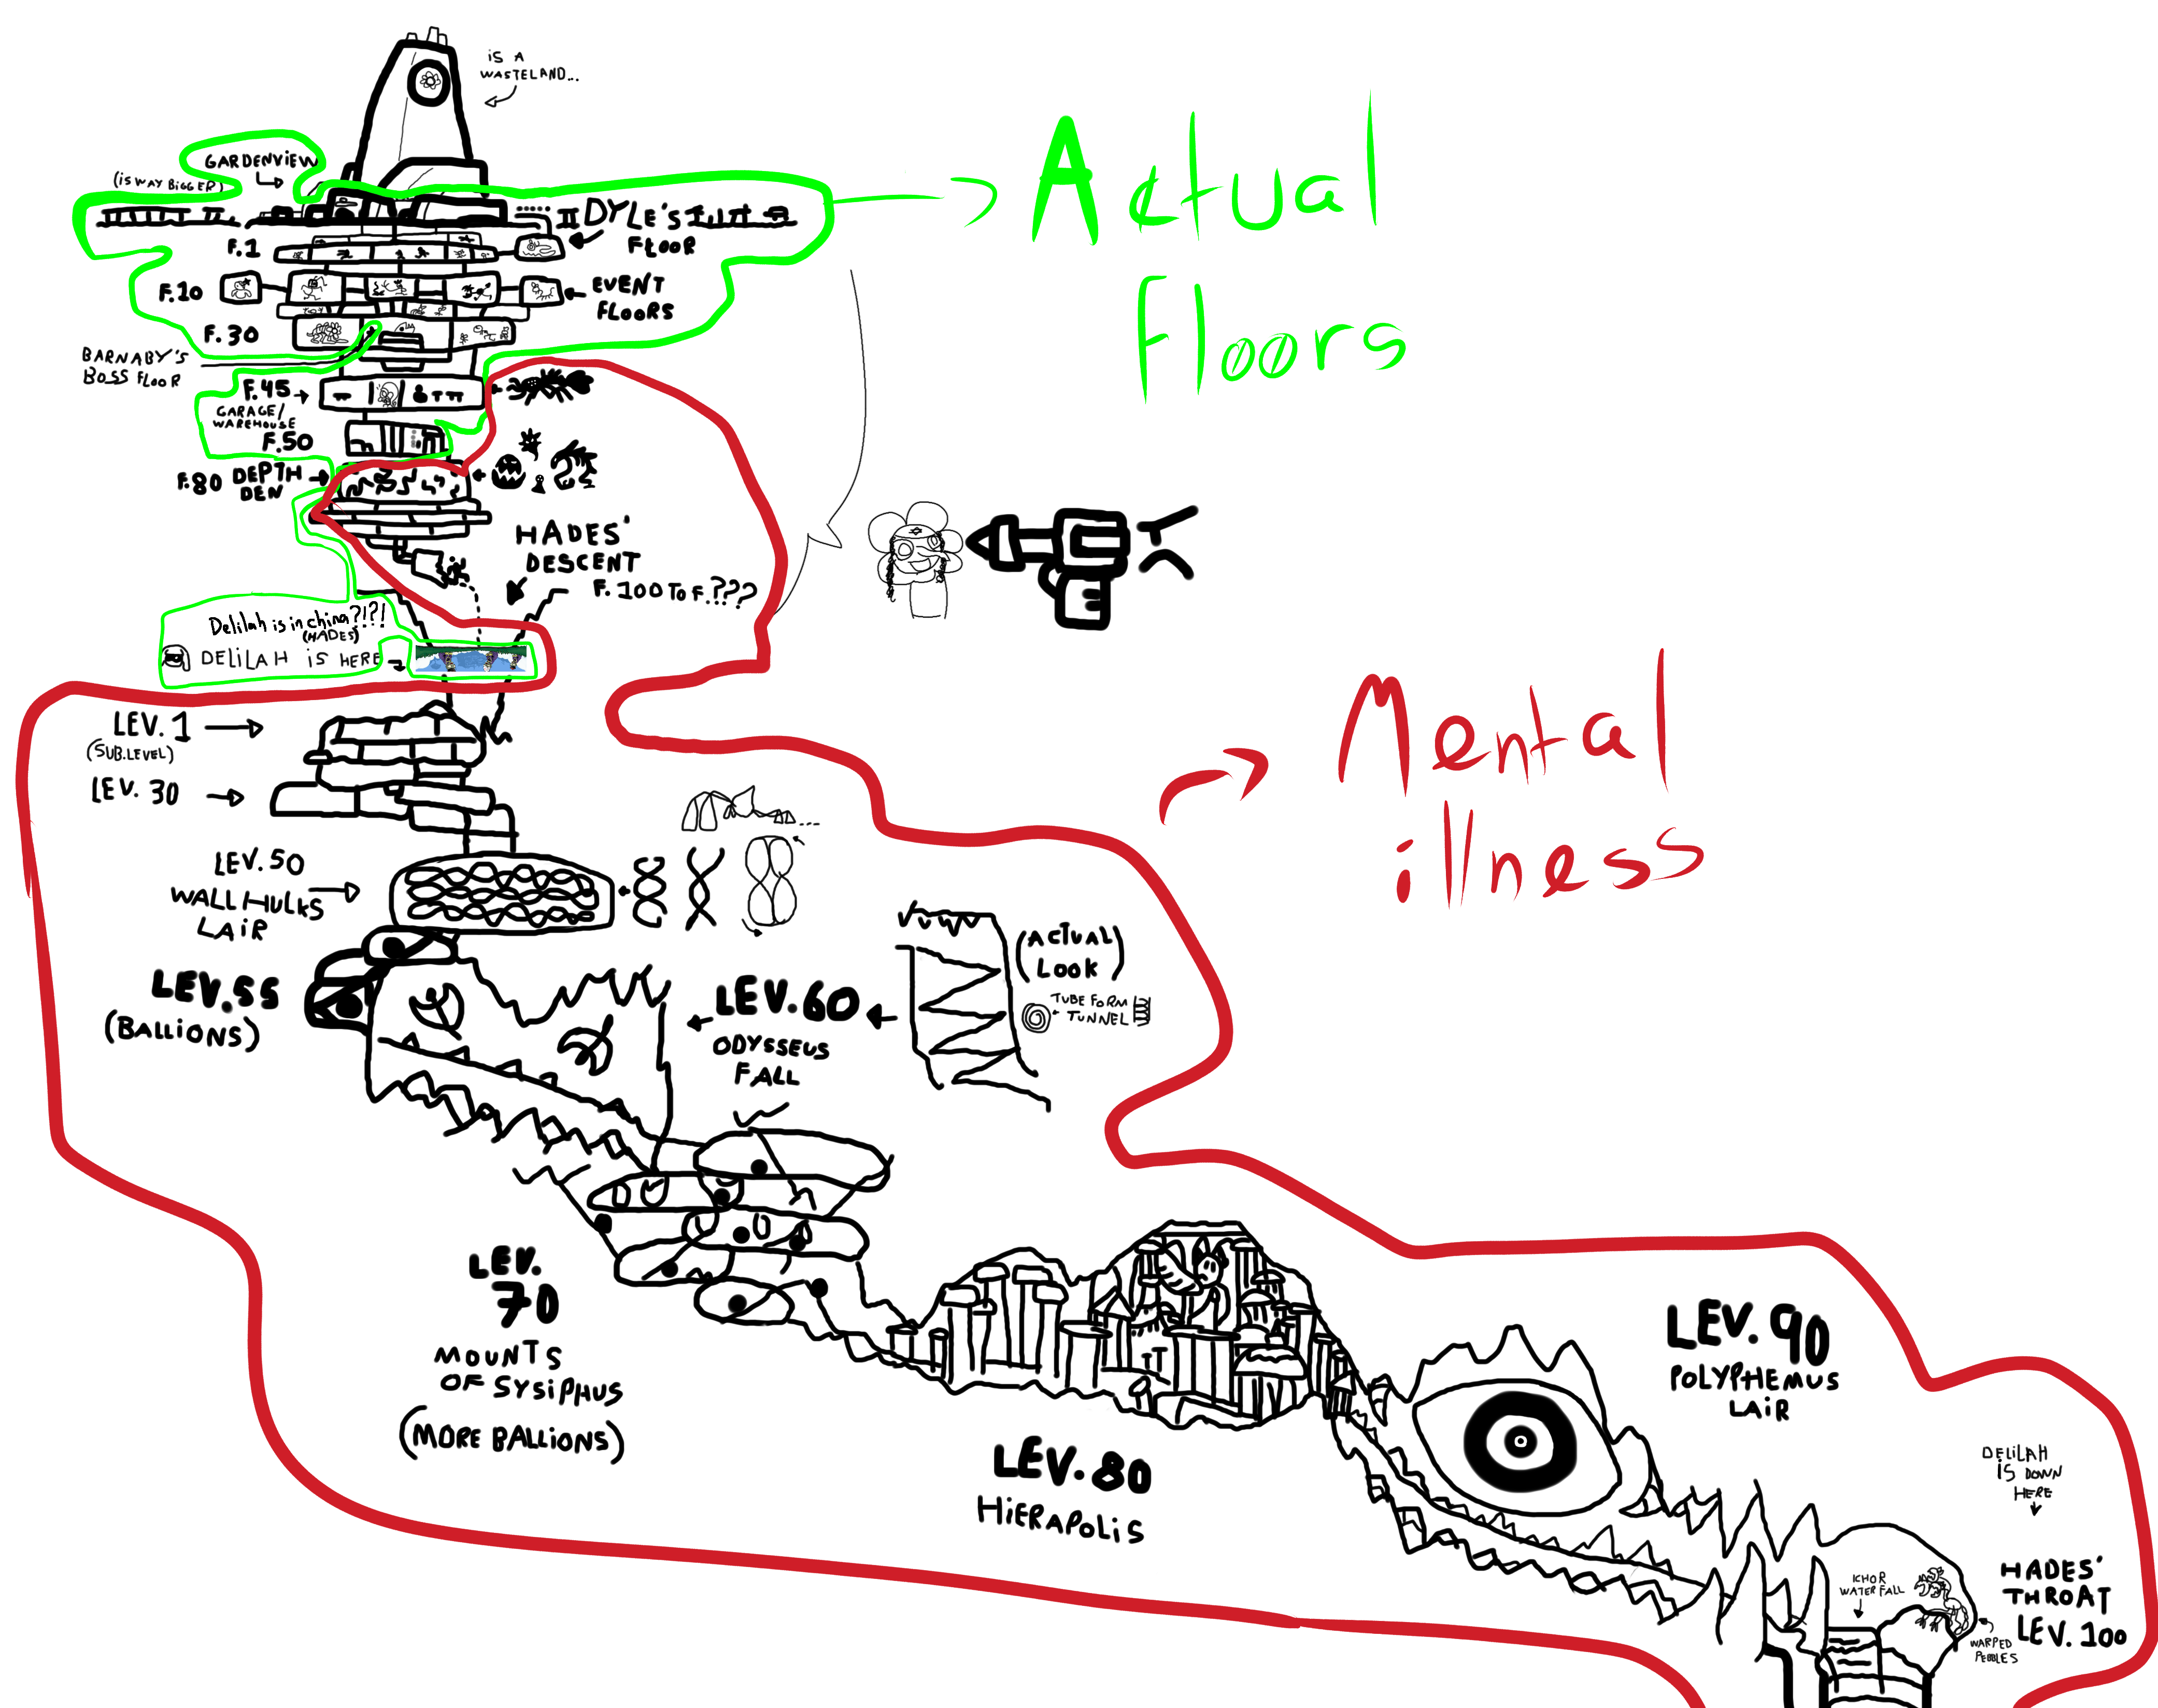 iS A
WASTELAND...
GARDENVIEW
(iS WAY BiGGER)
DYLE'S
FLOOR
F.1
F.10
EVENT
FLOORS
F.30
BARNABY'S
BOSS FLOOR
F.45
GARAGE/
WAREHOUSE
F.50
F.80 DEPTH
DEN
HADES'
DESCENT
F.100 To F.???
Delilah is in china?!?!
(HADES)
DELiLAH iS HERE
Actual
Floors
LEV.1
(SUB.LEVEL)
LEV.30
Mental
illness
LEV.50
WALL HULKS
LAiR
LEV.55
(BALLiONS)
LEV.60
ODYSSEUS
FALL
(ACTUAL)
LOOK
TUBE FORM
TUNNEL
LEV.
70
MOUNTS
OF SYSiPHUS
(MORE BALLiONS)
LEV.80
HiERAPOLiS
LEV.90
POLYPHEMUS
LAiR
DELiLAH
iS DOWN
HERE
HADES'
THROAT
LEV.100
iCHOR
WATERFALL
WARPED
PEBBLES